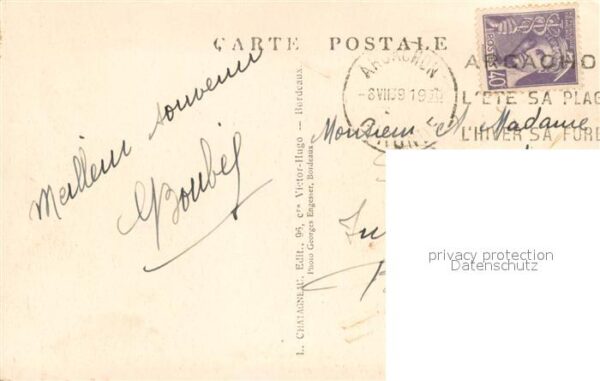 CARTE POSTALE
Meilleur souvenir
L. CHATAGNEAU, Edit., 96, crs Victor-Hugo — Bordeaux.
Photo Georges Engesser, Bordeaux
ARCACHON
ARCACHO
L'ÉTÉ SA PLAG
L'HIVER SA FORE
POSTES
40
Monsieur et Madame
privacy protection
Datenschutz